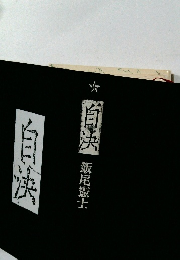 自決
自決
飯尾憲士